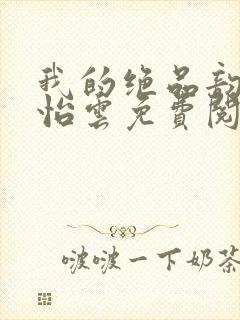 我的绝品
怡雲免費閱
啵啵一下奶茶